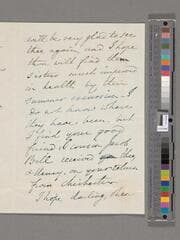 will be very glad to see
thee again and I hope
thou will find them
Sisters much improved
in health by their
summer excursion. I
do not know where
they have been but
I find your good
friend & cousin Jacob
Bell received they
& Henry on your return
from Chichester
I hope darling thee